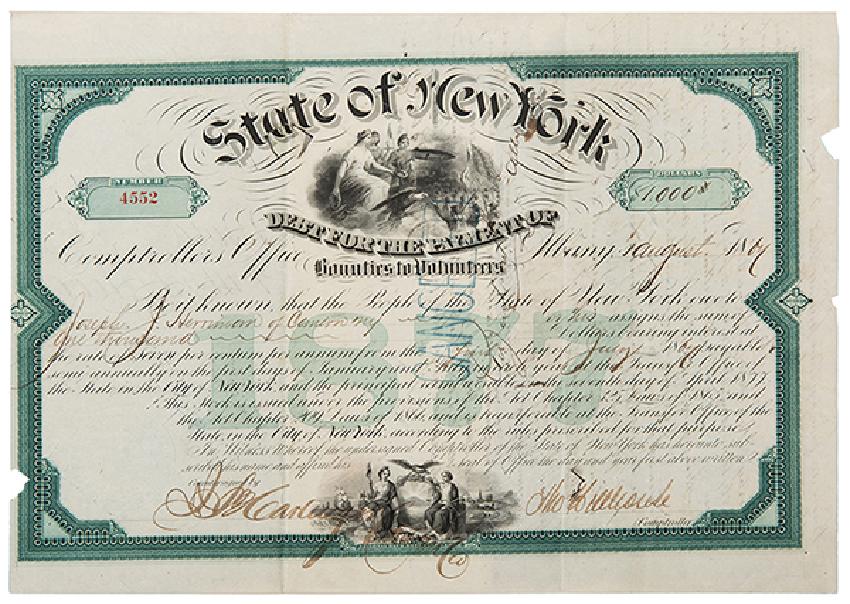 State of New York
NUMBER
4552
DOLLARS
1,000
DEBT FOR THE PAYMENT OF
Comptrollers Office Albany August 1867
Bounties to Volunteers
CANCE
Be it known, that the People of the State of New York owe to
Joseph J. Herriman of Canton NY or his assigns the sum of
One thousand Dollars, bearing interest at
the rate of seven per centum per annum from the day of July 1867 payable
semi annually on the first days of January and July in each year at the Office of
the State in the City of New York and the principal on the seventh day of April 1877
This Stock is issued under the provisions of the Act Chapter Laws of 1865 and
the Act Chapter 209 Laws of 1866 and is transferable at the Transfer Office of the
State, in the City of New York, according to the rules prescribed for that purpose
In Witness Whereof the undersigned Comptroller of the State of New York has hereunto sub-
scribed his name and affixed his seal of Office the day and year first above written
1877
Comptroller